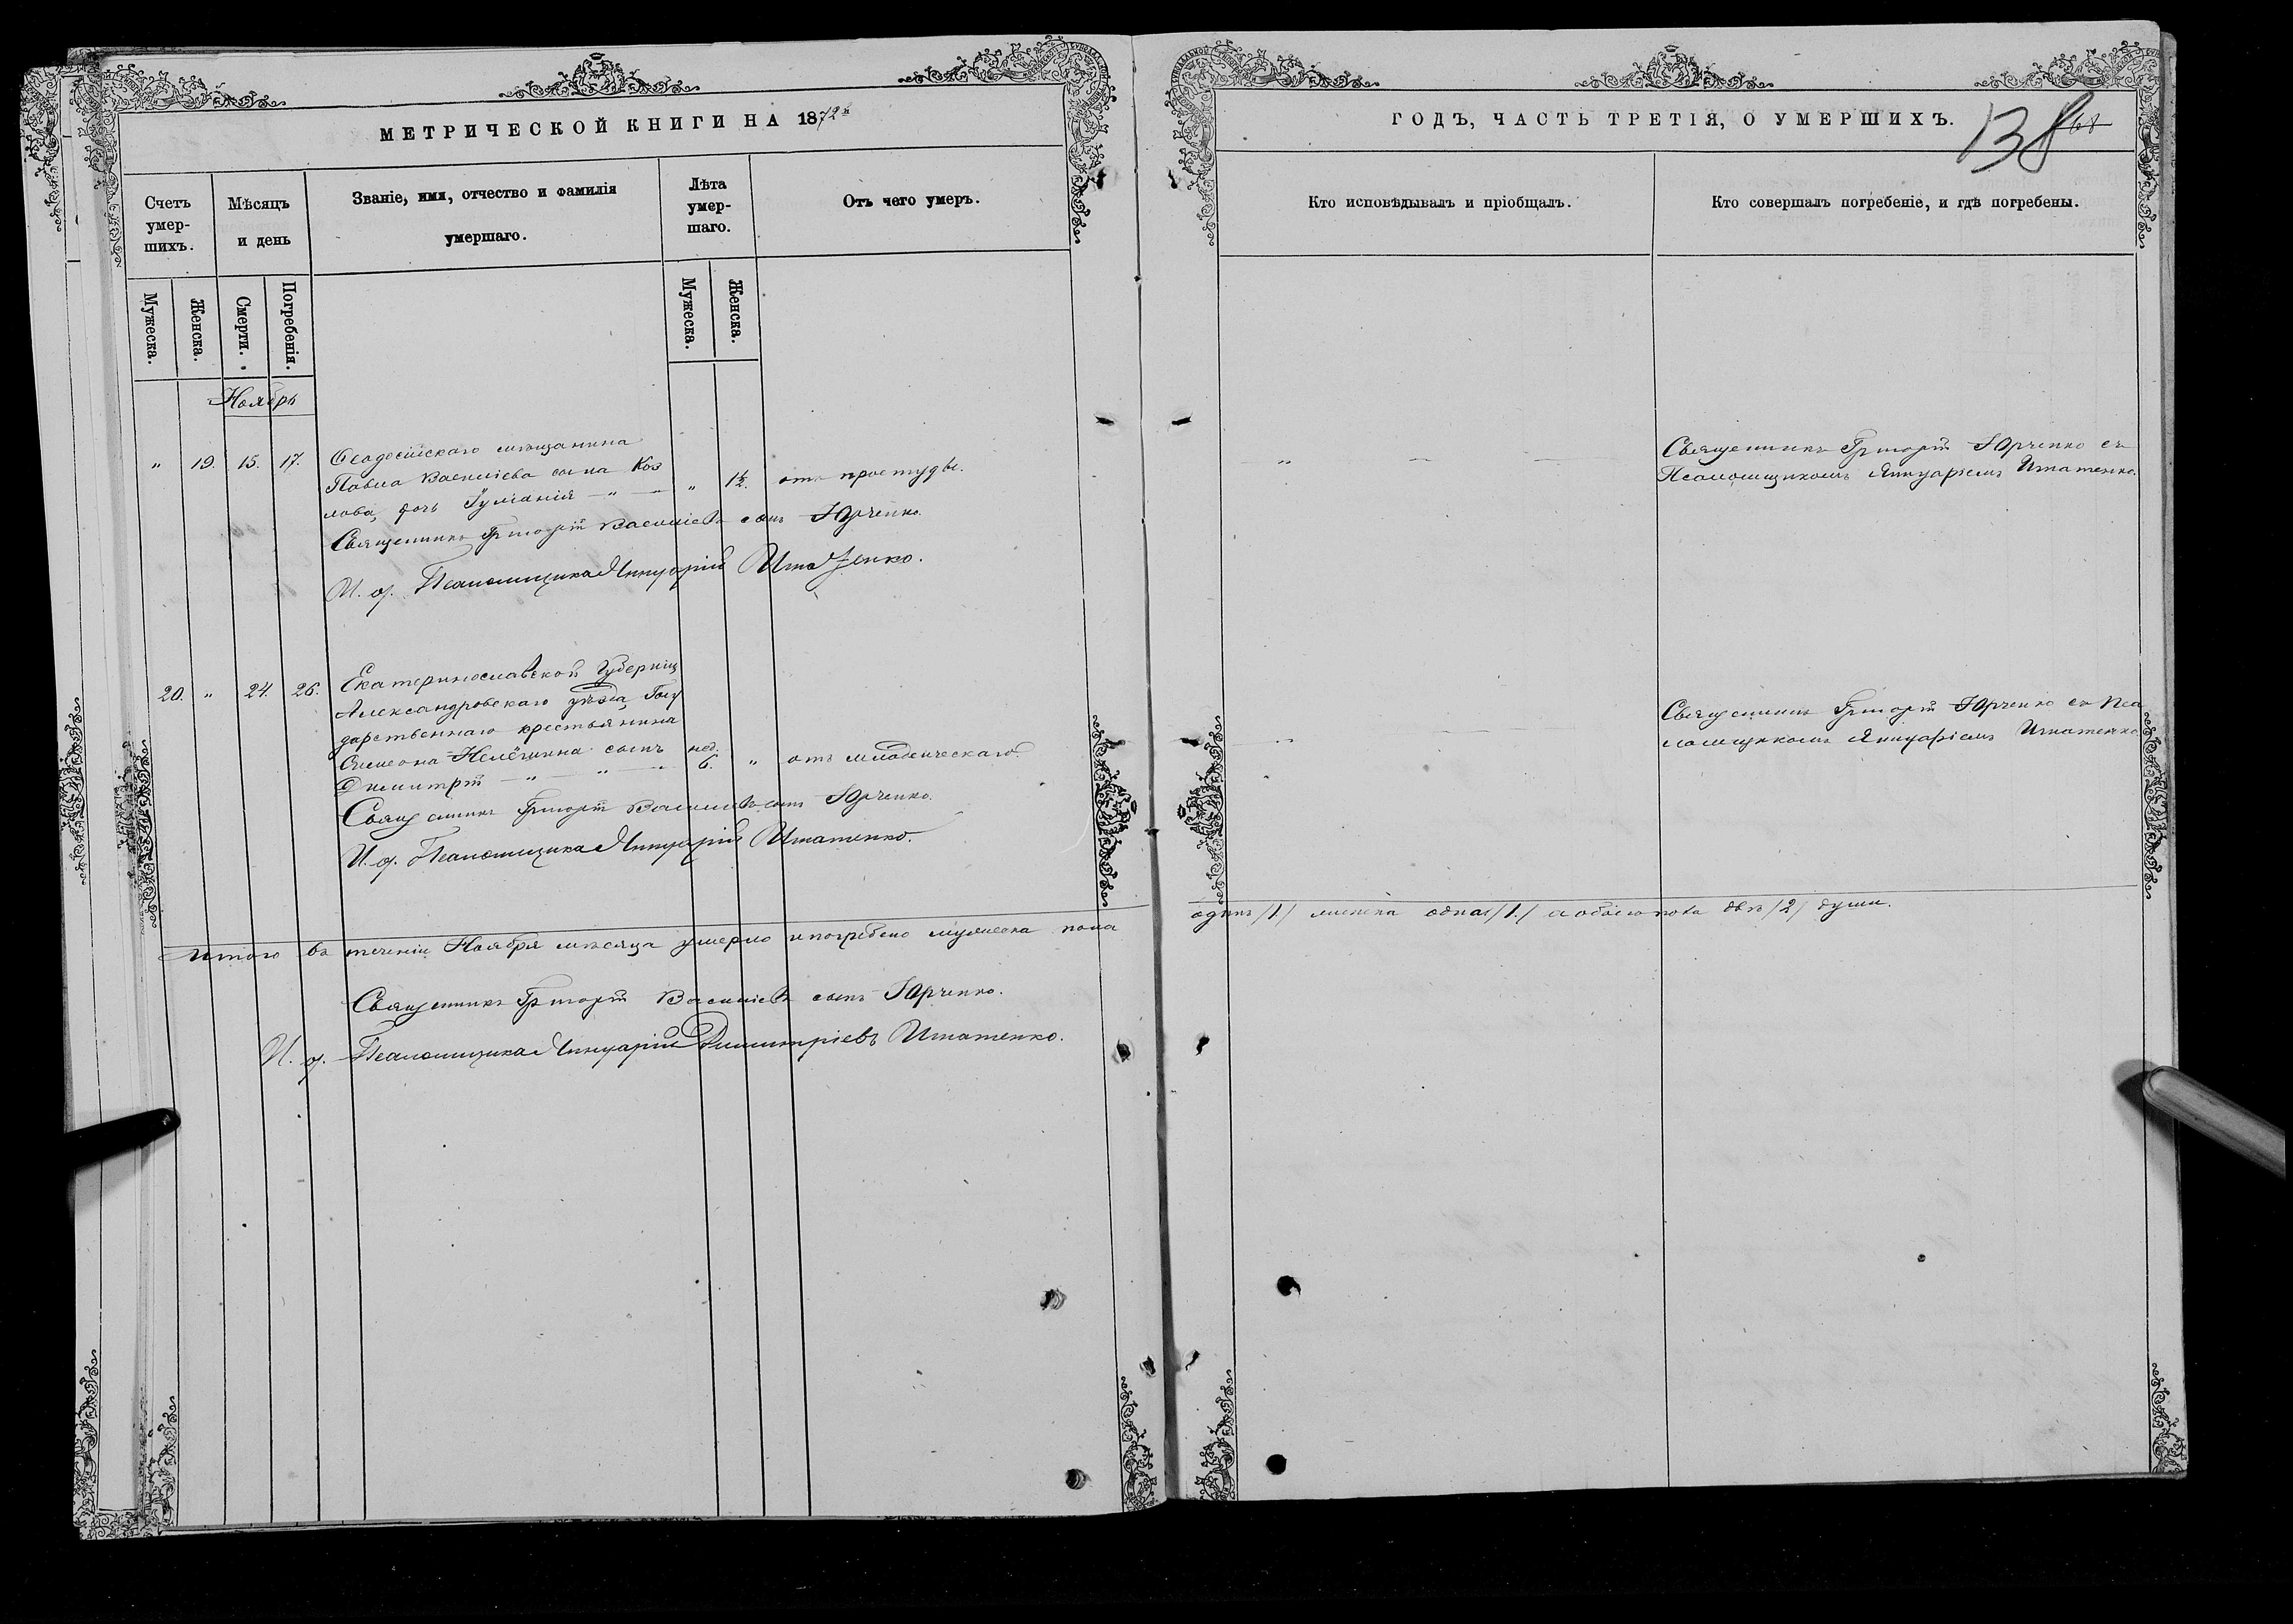 МЕТРИЧЕСКОЙ КНИГИ НА 1872й
Счетъ умер-шихъ.
Мѣсяцъ и день
Званіе, имя, отчество и фамилія умершаго.
Лѣта умер-шаго.
Отъ чего умеръ.
Мужеска.
Женска.
Смерти.
Погребенія.
Мужеска.
Женска.
Ноябрь
" 19. 15. 17. Ѳеодосійскаго мѣщанина
Павла Васильева сына Коз
лова, дочь Іуліанія " " " 1½. отъ простуды.
Священникъ Григорій Васильевъ сынъ Юрченко.
И. д. Псаломщика Яннуарій Игнатенко.
20. " 24. 26. Екатеринославской Губерніи
Александровскаго уѣзда Госу
дарственнаго крестьянина
Симеона сынъ нед.
Димитрій " " " 6. " отъ младенческаго.
Священникъ Григорій Васильевъ сынъ Юрченко.
И. д. Псаломщика Яннуарій Игнатенко.
Итого въ теченіи Ноября мѣсяца умерло и погребено мужеска пола
Священникъ Григорій Васильевъ сынъ Юрченко.
И. д. Псаломщика Яннуарій Димитріевъ Игнатенко.
ГОДЪ, ЧАСТЬ ТРЕТІЯ, О УМЕРШИХЪ.
138
68
Кто исповѣдывалъ и пріобщалъ.
Кто совершалъ погребеніе, и гдѣ погребены.
Священникъ Григорій Юрченко съ
Псаломщикомъ Яннуаріемъ Игнатенко.
Священникъ Григорій Юрченко съ Пса
ломщикомъ Яннуаріемъ Игнатенко
одинъ /1./ женска одна /1./ а обоего пола двѣ /2/ души.